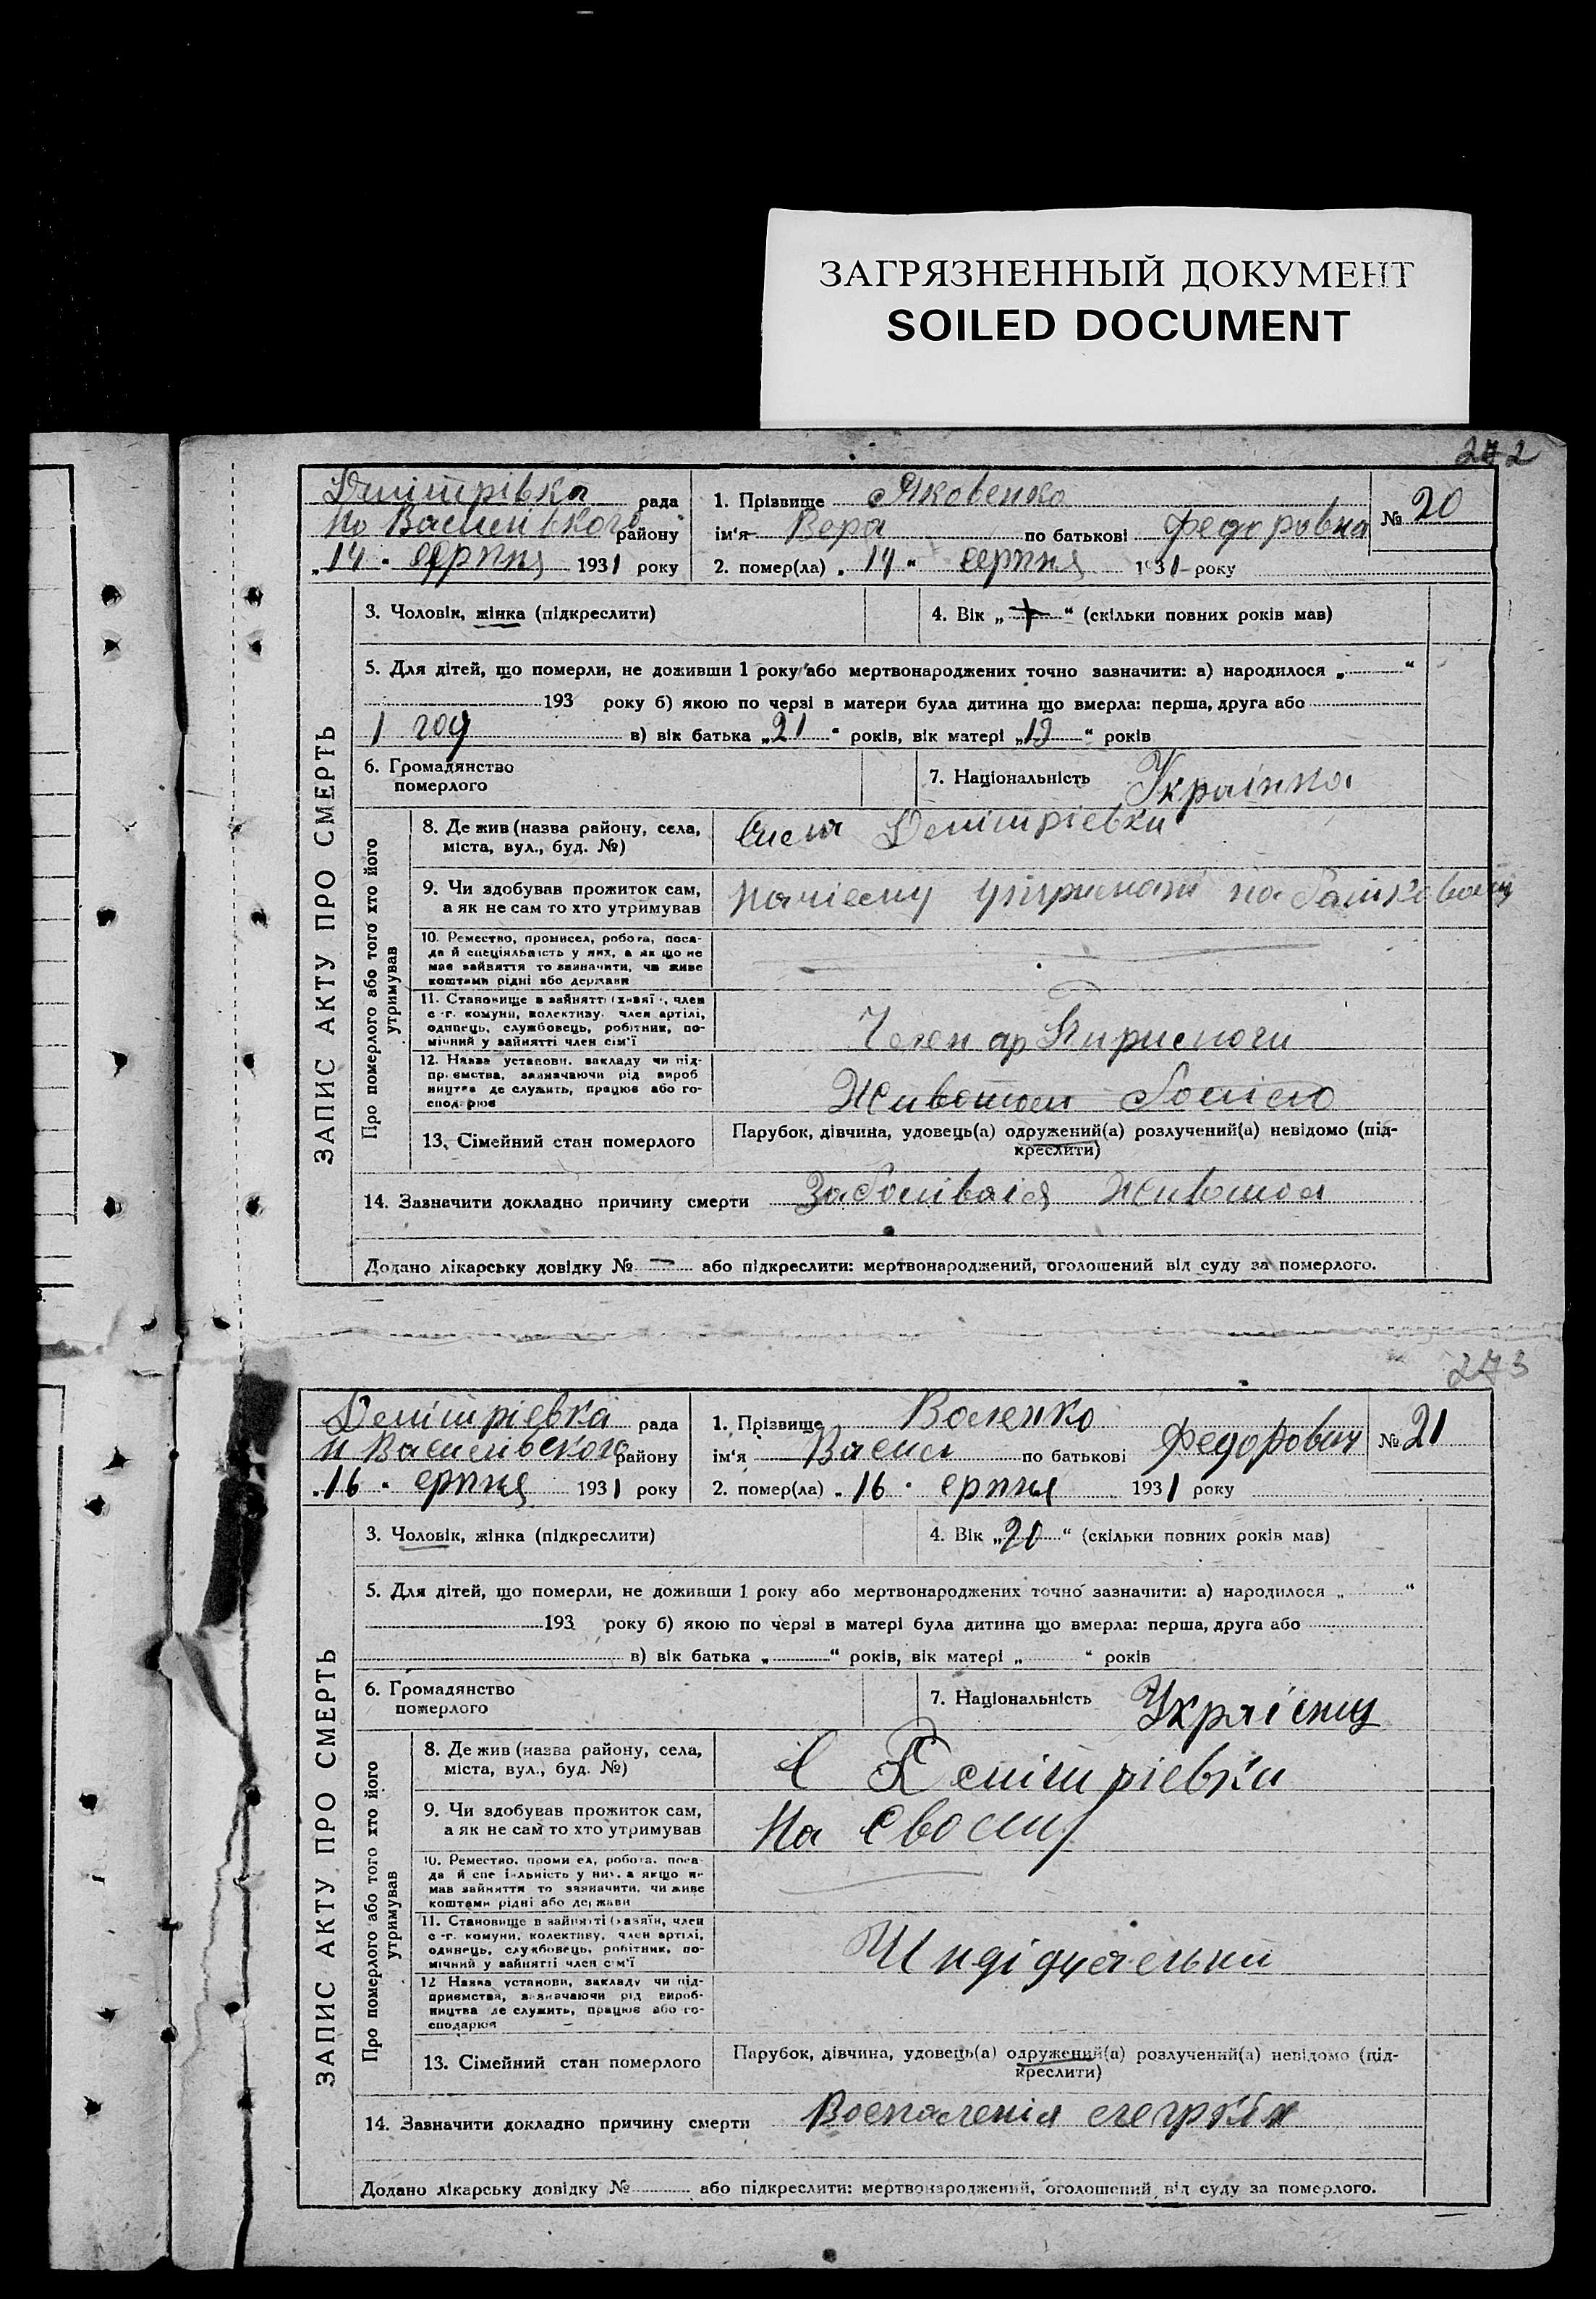 ЗАГРЯЗНЕННЫЙ ДОКУМЕНТ
SOILED DOCUMENT
272
Дмітрівка рада
району
„14" серпня 1931 року
1. Прізвище Яковенко
ім'я Вера по батькові Федоровна
2. помер(ла) „14" серпня 1931 року
№ 20
ЗАПИС АКТУ ПРО СМЕРТЬ
3. Чоловік, жінка (підкреслити)
4. Вік „ " (скільки повних років мав)
5. Для дітей, що померли, не доживши 1 року або мертвонароджених точно зазначити: а) народилося „ "
193 року б) якою по черзі в матери була дитина що вмерла: перша, друга або
1 год в) вік батька „21" років, вік матері „19" років
6. Громадянство
померлого
7. Національність Українка
Про померлого або того хто його
утримував
8. Де жив (назва району, села,
міста, вул., буд. №)
9. Чи здобував прожиток сам,
а як не сам то хто утримував
10. Ремество, промисел, робота, поса-
да й спеціяльність у них, а як що не
має зайняття то зазначити, чи живе
коштами рідні або держави
11. Становище в зайнятті (хазяїн, член
с.-г. комуни, колективу, член артілі,
одинець, службовець, робітник, по-
мічний у зайнятті член сім'ї
12. Назва установи, закладу чи під-
приємства, зазначаючи рід вироб
ництва де служить, працює або го-
сподарює
13. Сімейний стан померлого
Парубок, дівчина, удовець(а) одружений(а) розлучений(а) невідомо (під-
креслити)
14. Зазначити докладно причину смерти
Додано лікарську довідку № — або підкреслити: мертвонароджений, оголошений від суду за померлого.
273
рада
району
„16" ерпня 1931 року
1. Прізвище Воленко
ім'я по батькові Федорович
2. помер(ла) „16" ерпня 1931 року
№ 21
ЗАПИС АКТУ ПРО СМЕРТЬ
3. Чоловік, жінка (підкреслити)
4. Вік „20" (скільки повних років мав)
5. Для дітей, що померли, не доживши 1 року або мертвонароджених точно зазначити: а) народилося „ "
193 року б) якою по черзі в матері була дитина що вмерла: перша, друга або
в) вік батька „ " років, вік матері „ " років
6. Громадянство
померлого
7. Національність
Про померлого або того хто його
утримував
8. Де жив (назва району, села,
міста, вул., буд. №)
9. Чи здобував прожиток сам,
а як не сам то хто утримував
На своєму
10. Ремество, промисел, робота, поса-
да й спеціяльність у них, а якщо не
мав зайняття то зазначити, чи живе
коштами рідні або держави
11. Становище в зайнятті (хазяїн, член
с.-г. комуни, колективу, член артілі,
одинець, службовець, робітник, по-
мічний у зайнятті член сім'ї
12 Назва установи, закладу чи під-
приємства, зазначаючи рід вироб-
ництва де служить, працює або го-
сподарює
13. Сімейний стан померлого
Парубок, дівчина, удовець(а) одружений(а) розлучений(а) невідомо (під-
креслити)
14. Зазначити докладно причину смерти Воспаленія
Додано лікарську довідку № або підкреслити: мертвонароджений, оголошений від суду за померлого.